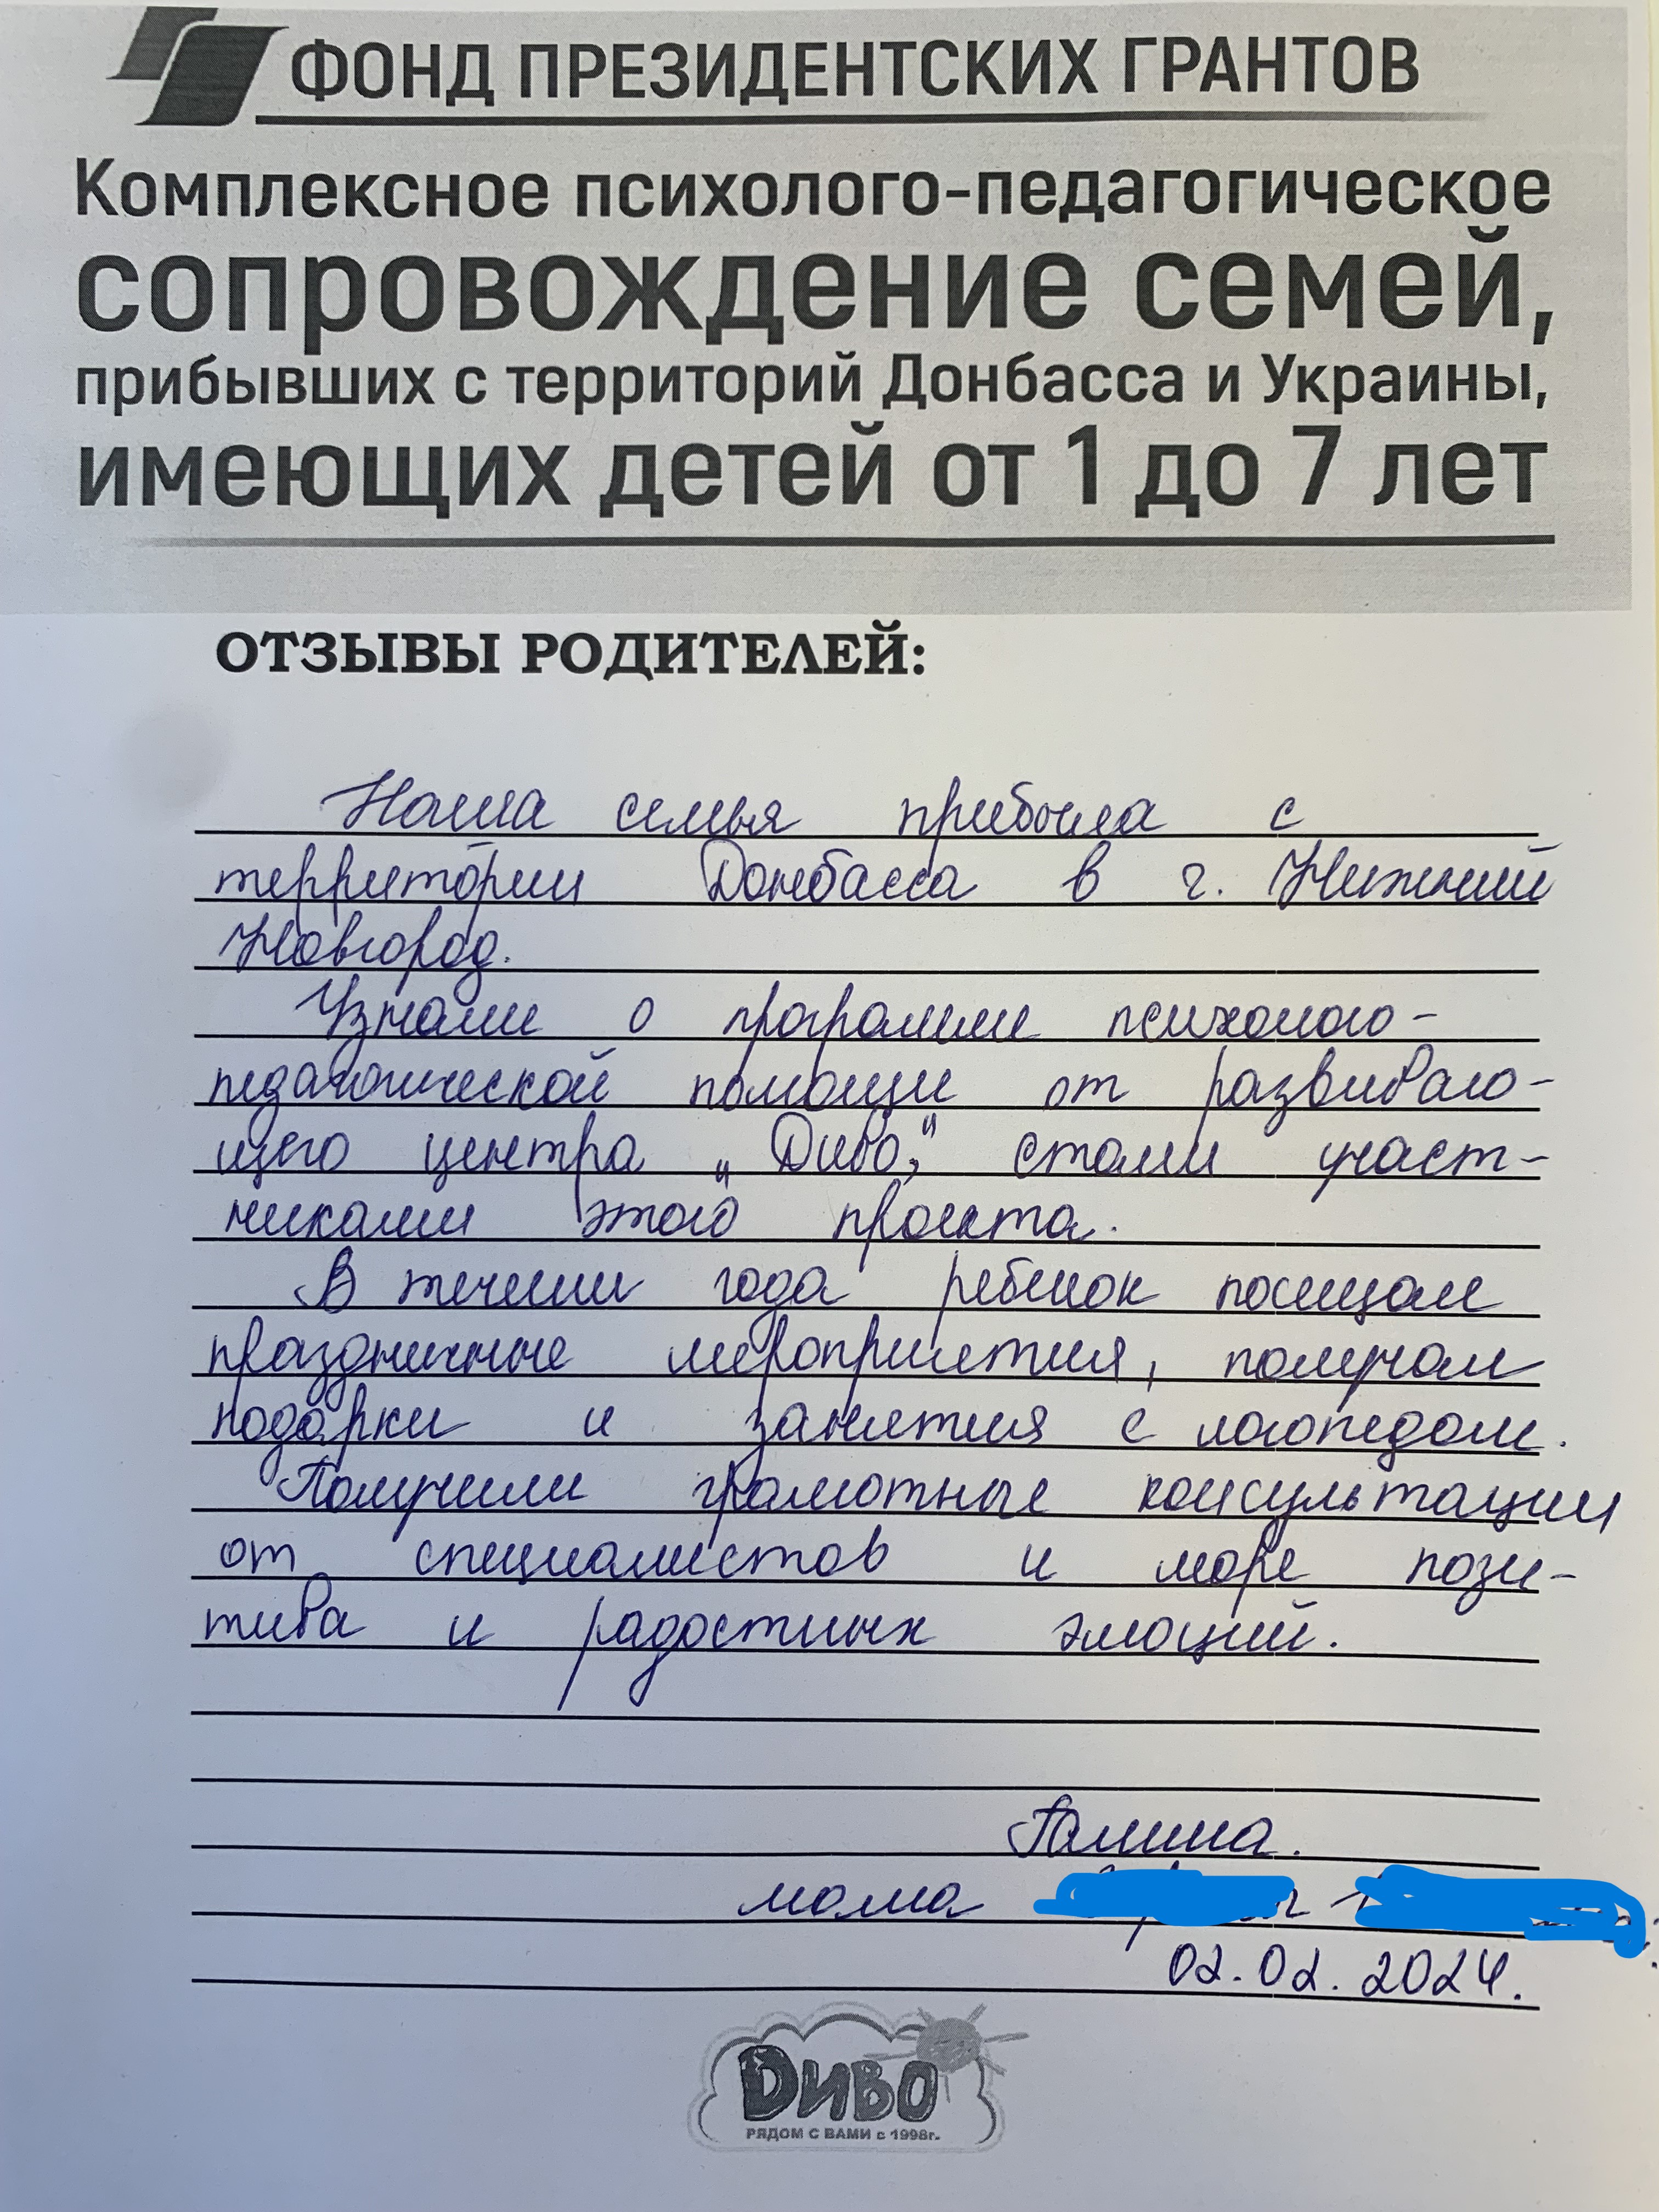 ФОНД ПРЕЗИДЕНТСКИХ ГРАНТОВ
Комплексное психолого-педагогическое
сопровождение семей,
прибывших с территорий Донбасса и Украины,
имеющих детей от 1 до 7 лет
ОТЗЫВЫ РОДИТЕЛЕЙ:
Наша семья прибыла с
территории Донбасса в г. Нижний
Новгород.
Узнали о программе психолого-
педагогической помощи от развиваю-
щего центра „Диво", стали участ-
никами этого проекта.
В течении года ребенок посещал
праздничные мероприятия, получал
подарки и занятия с логопедом.
Получили грамотные консультации
от специалистов и море пози-
тива и радостных эмоций.
Галина.
мама
02.02.2024.
Диво
РЯДОМ С ВАМИ с 1998г.